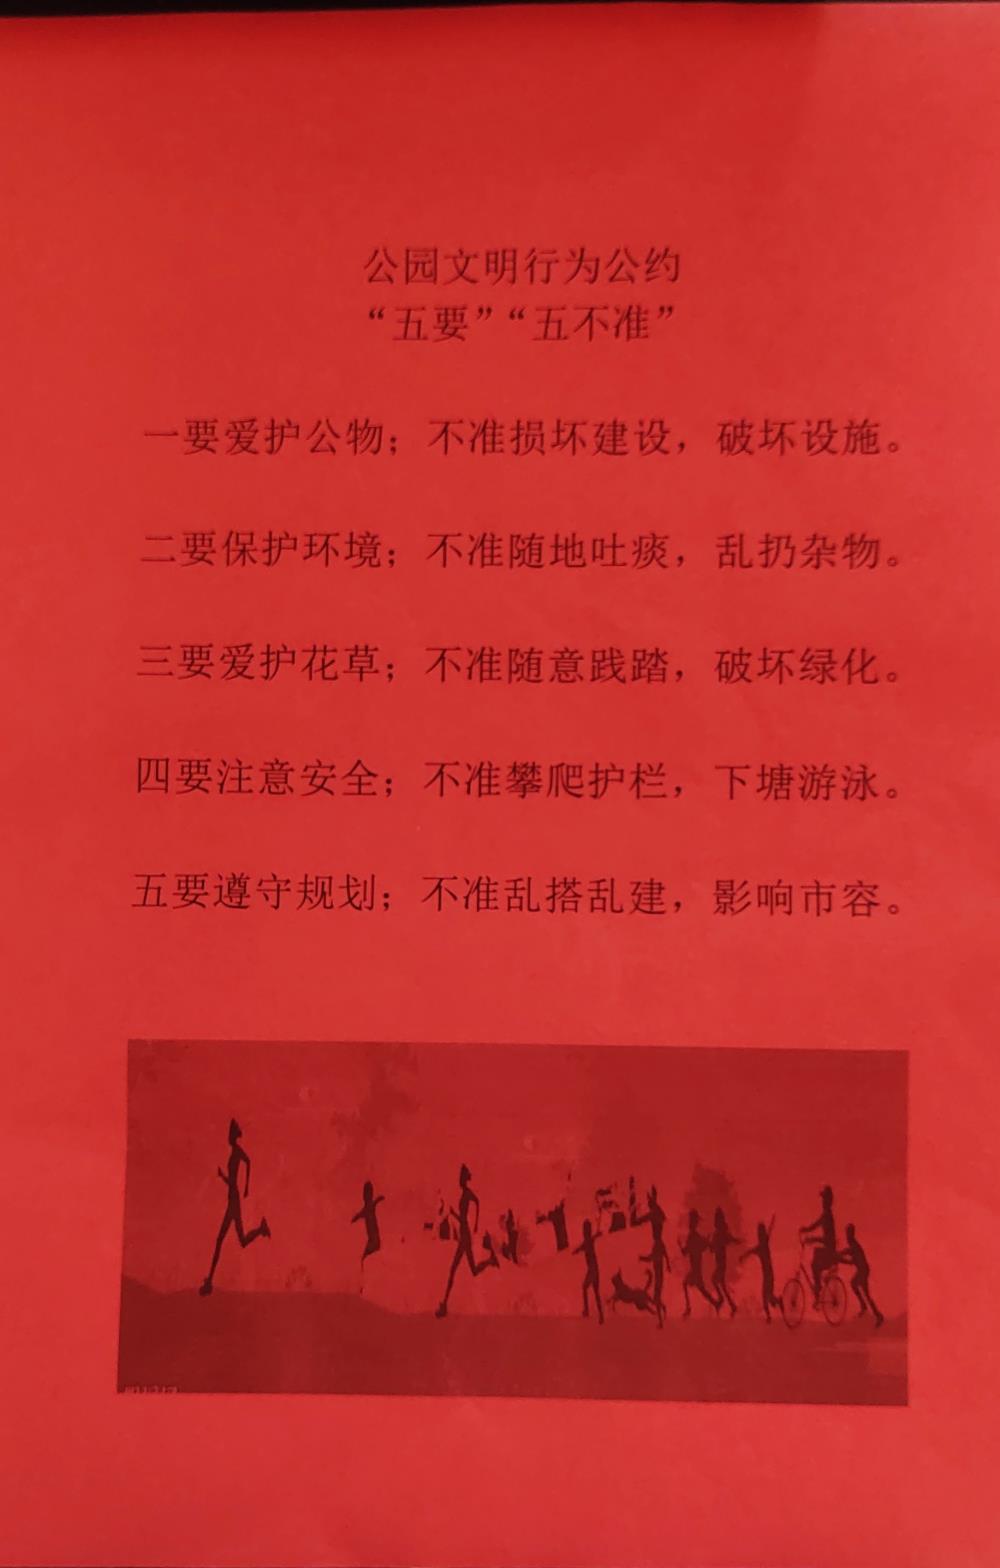 公园文明行为公约
“五要”“五不准”
一要爱护公物；不准损坏建设，破坏设施。
二要保护环境；不准随地吐痰，乱扔杂物。
三要爱护花草；不准随意践踏，破坏绿化。
四要注意安全；不准攀爬护栏，下塘游泳。
五要遵守规划；不准乱搭乱建，影响市容。